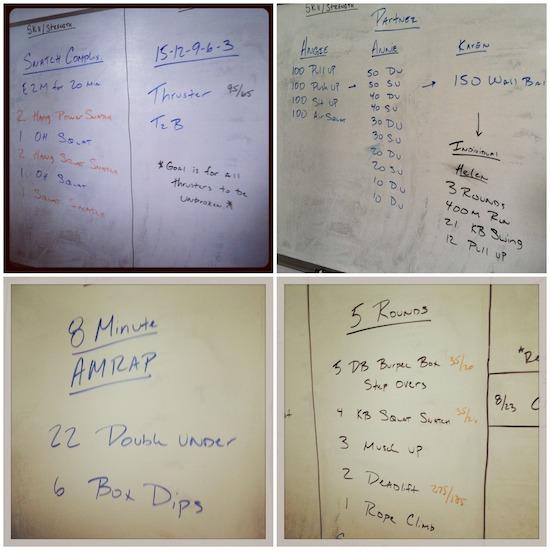 Skill/Strength
Snatch Complex
E2M for 20 min
2 Hang Power Snatch
1 OH Squat
2 Hang Squat Snatch
1 OH Squat
1 Squat Snatch
15-12-9-6-3
Thruster 95/65
T2B
* Goal is for all
thrusters to be
unbroken *
Skill/Strength
Partner
Angie
100 Pull up
100 Push up
100 Sit up
100 Air Squat
Annie
50 DU
50 SU
40 DU
40 SU
30 DU
30 SU
20 DU
20 SU
10 DU
10 DU
Karen
150 Wall Bal
Individual
Helen
3 Rounds
400m Run
21 KB Swing
12 Pull up
8 Minute
AMRAP
22 Double under
6 Box Dips
5 Rounds
5 DB Burpee Box 35/20
Step Overs
4 KB Squat Snatch 35/
3 Muscle up
2 Deadlift 275/185
1 Rope Climb
*Re
8/23 C